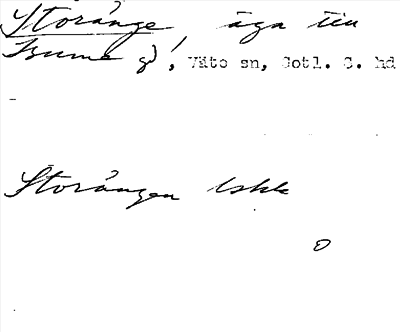 Storänge, äga till
Bsume gd, Väte sn, Gotl. S. hd
Storängen lskk